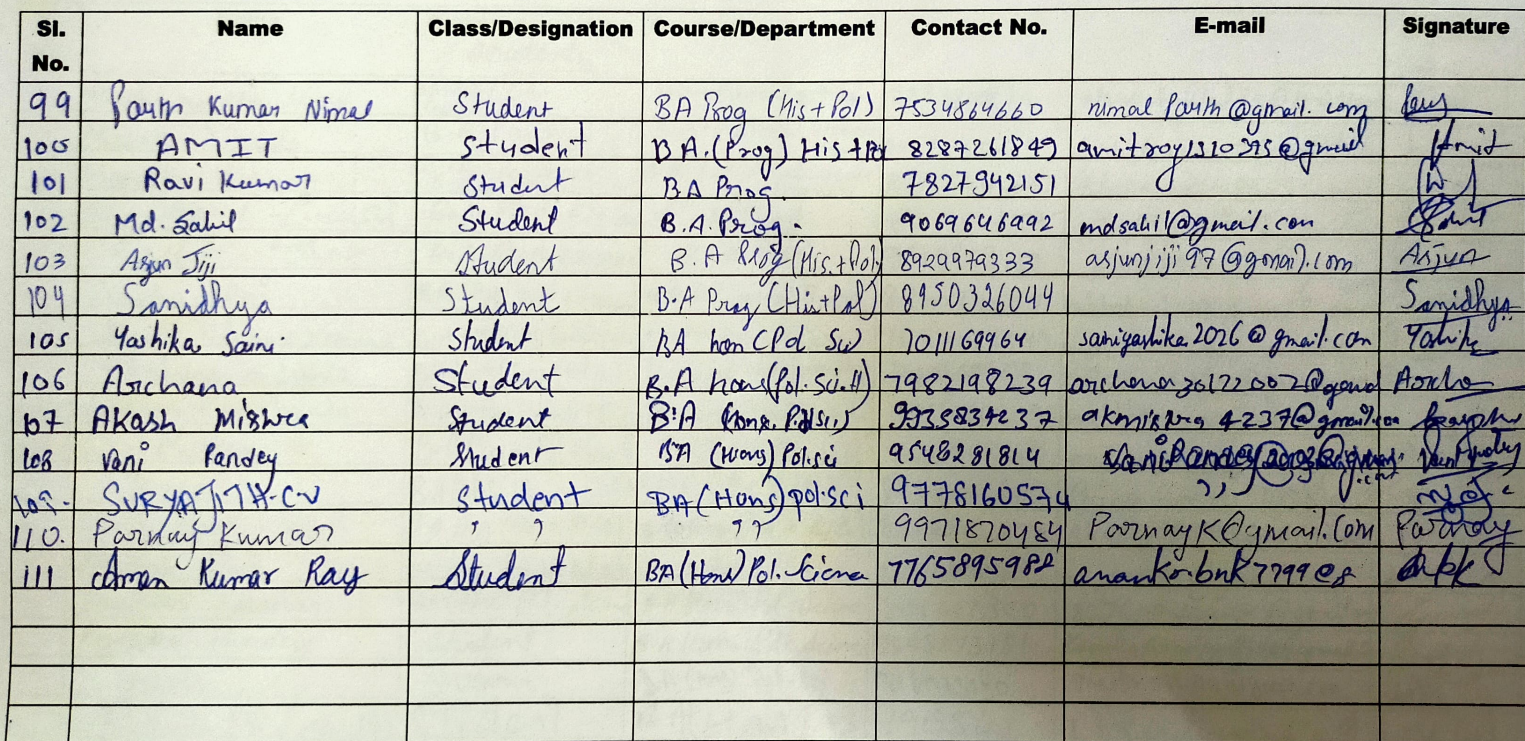 Sl. No. Name Class/Designation Course/Department Contact No. E-mail Signature
99 Parth Kumar Nimal Student BA Prog (His+Pol) 7534864660 nimal Parth@gmail.com
100 AMIT Student BA.(Prog) His+Pol 8287261849 Amit
101 Ravi Kumar Student BA Prog. 7827942151
102 Md. Sahil Student B.A. Prog. 9069646992 mdsahil@gmail.com
103 Arjun Jiji Student B.A Prog (His.+Pol) 8929979333 arjunjiji97@gmail.com Arjun
104 Sanidhya Student B.A Prog (His+Pol) 8950326044 Sanidhya
105 Yashika Saini Student BA hon (Pol Sci) 7011169964 sainiyashika2026@gmail.com
106 Archana Student B.A hons(Pol.Sci.H) 7982198239
107 Akash Mishra Student B.A (Hons. Pol Sci) 9935834237 akmishra4237@gmail.com
108 Vani Pandey Student BA (Hons) Pol.sci 9548281814
109. SURYAJITH-C-V Student BA (Hons) pol.sci 9778160574 ,,
110. Parnay Kumar ,, ,, 9971870484 ParnayK@gmail.com Parnay
111 Aman Kumar Ray Student BA (Hons) Pol.